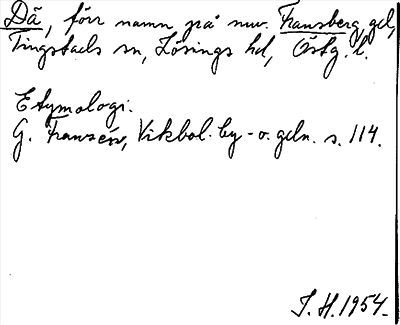 Dä, förr namn på nuv. Fransberg, gd,
Tingstads sn, Lösings hd, Östg. l.
Etymologi.
G. Franzén, Vikbol. by- o. gdn. s. 114.
I. H. 1954.